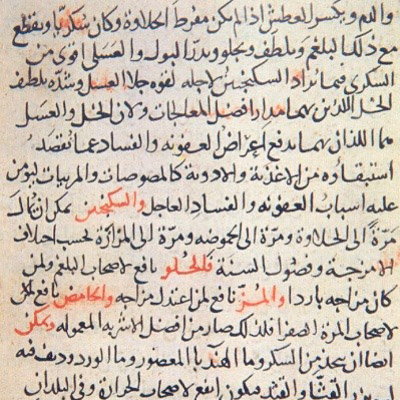 والدم ويكسر العطش اذا لم يكن مفرط الحلاوة وكان سكريا ويقطع
مع ذلك البلغم ويلطف ويجلو ويدر البول والعسلى اقوى من
السكرى فيما يراد السكنجبين لاجله لقوة جلا العسل وشدة تلطف
الخل اللذين بهما مدار افضل المعالجات ولان الخل والعسل
مما اللذان بهما يدفع اعراض العفونه والفساد عما يقصد
استبقاءه من الاغذية والادوية كالمصوصات والمربيات ليؤمن
عليه اسباب العفونه والفساد العاجل والسكنجبين يمكن
مرة الى الحلاوة ومرة الى الحموضه ومرة الى المرارة بحسب اختلاف
الامزجة وفصول السنة فالحلو نافع لاصحاب البلغم ولمن
كان مزاجه باردا والمز نافع لمن اعتدل مزاجه والحامض نافع لمن
لاصحاب المرة الصفرا فلذلك صار من افضل الاشربه المعموله ويمكن
ايضا ان يتخذ من السكر وما الهندبا المعصور وما الورد ويديف فيه
القثا والقند فيكون انفع لاصحاب الحميات وفى البلدان